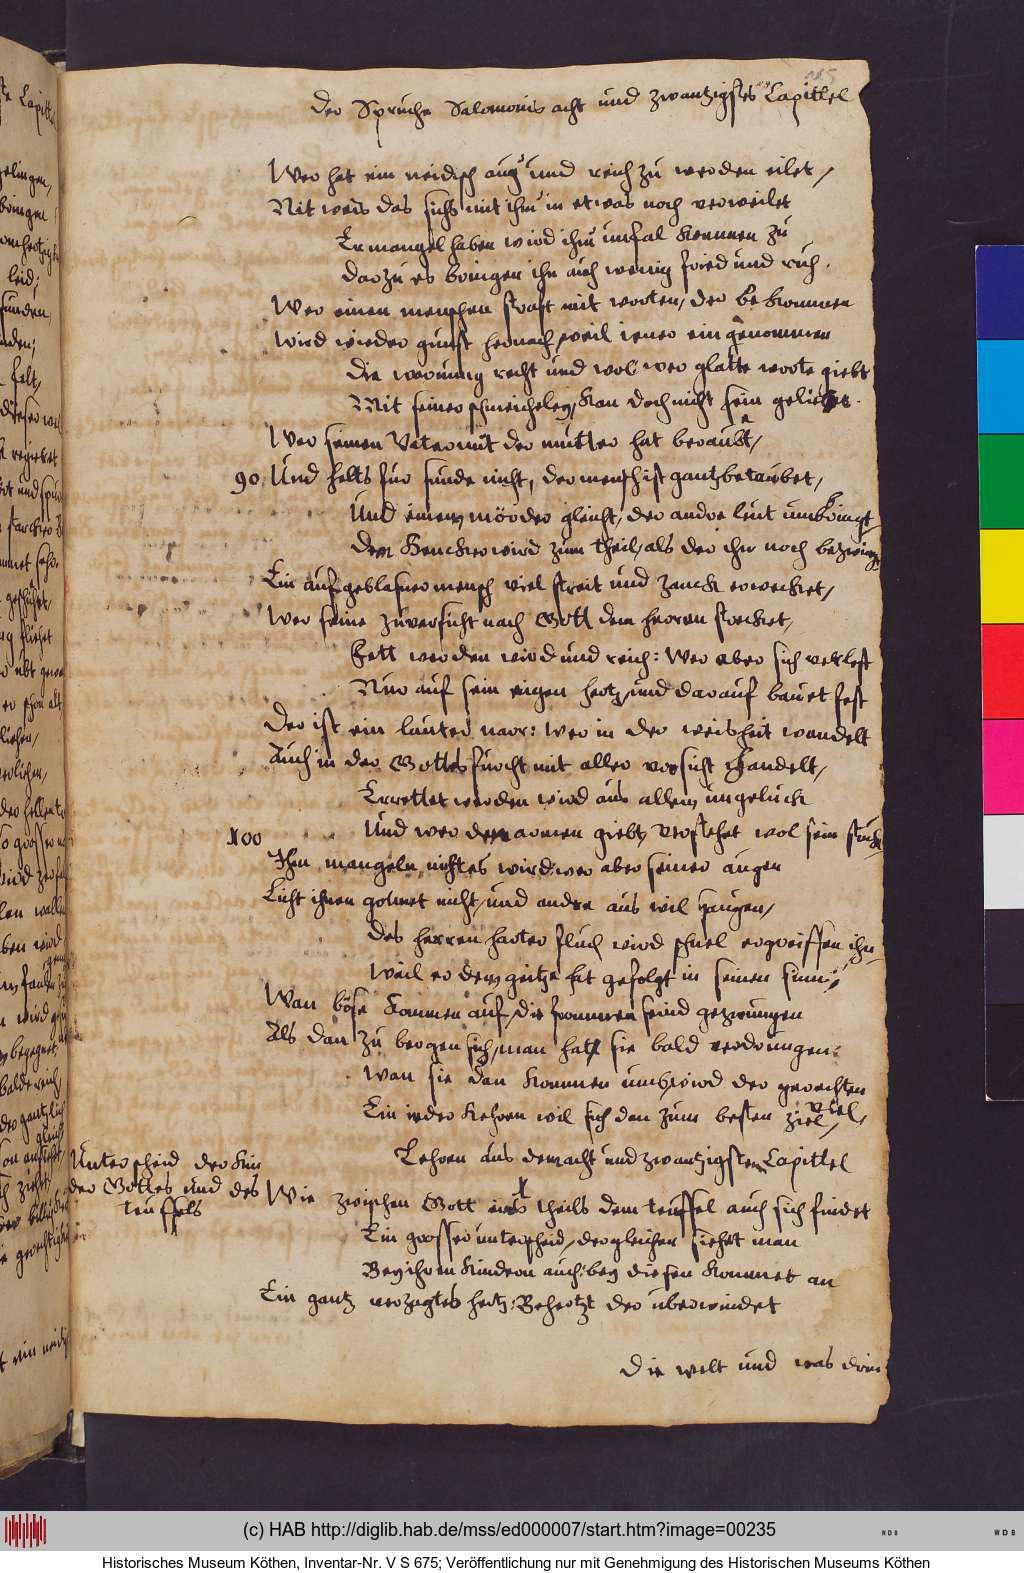 Der Spruche Salomonis acht und zwantzigstes Capittel
Wer hat ein neidisch aug' und reich zu werden eilet,
Nit weis das sichs mit ihm in etwas noch verweilet
Er mangel haben wird ihm unfal kommen zu
darzu es bringen ihn auch wenig fried und ruh.
Wer einen menschen straft mit worten, der bekommen
Wird wieder gunst hernach, weil iener eingenommen
die warnung recht und wol wer glatte worte giebt
Mit seiner schmeicheley, kan doch nicht sein geliebt.
Wer seinen Vater mit der mutter hat beraubt,
90. Und helts fur sunde nicht, der mensch ist gantz betaubet,
Und einem mörder gleich, der andre leut umbringt,
dem Hencker wird zum theil, als der ihn noch bezwingt
Ein aufgeblasner mensch viel streit und zanck erwecket,
Wer seine zuversicht nach Gott dem herren strecket,
Fett werden wird und reich: Wer aber sich verlest
Nur auf sein eigen hertz, und darauf bauet fest
Der ist ein lauter narr: wer in der weisheit wandelt
Auch in der Gottesfurcht mit aller vorsicht handelt,
Errettet werden wird aus allem ungelück
100 Und wer den armen giebt, verstehet wol sein stück,
Ihm mangeln nichtes wird: wer aber seiner augen
Licht ihnen gönnet nicht, und andre aus wil saugen,
des herren harter fluch wird schnel ergreiffen ihn,
Weil er dem geitze hat gefolgt in seinem sinn;
Wan böse kommen auf, die frommen seind gezwungen
Als dan zu bergen sich, man hat sie bald verdrungen:
Wan sie dan kommen umb, wird der gerechten viel,
Ein ieder kehren wil sich dan zum besten ziel,
Lehren aus dem acht und zwantzigsten Capittel
Unterscheid der Kin
der Gottes und des
teuffels
Wie zwischen Gott eins theils dem teuffel auch sich findet
Ein grosser unterscheid, dergleichen siehet man
Bey ihren Kindern auch: bey diesen kommet an
Ein gantz verzagtes hertz: Behertzt der uberwindet
Die welt und was drin
(c) HAB http://diglib.hab.de/mss/ed000007/start.htm?image=00235
Historisches Museum Köthen, Inventar-Nr. V S 675; Veröffentlichung nur mit Genehmigung des Historischen Museums Köthen